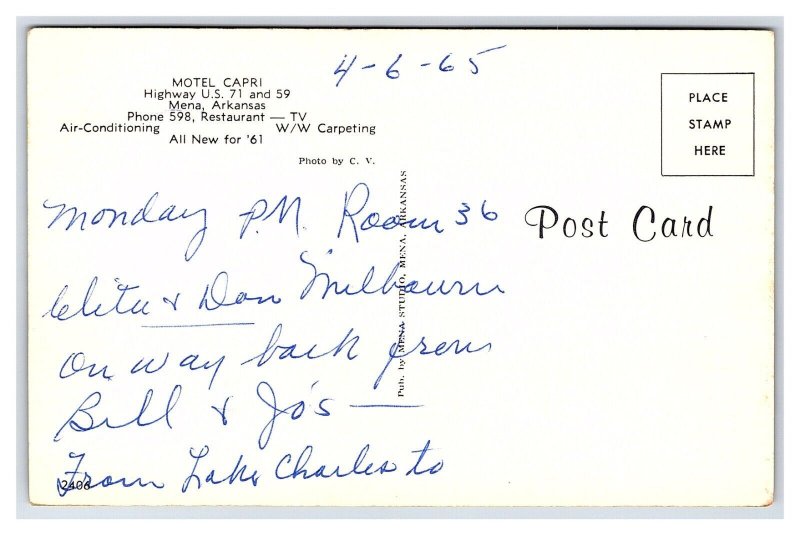 4-6-65
MOTEL CAPRI
Highway U.S. 71 and 59
Mena, Arkansas
Phone 598, Restaurant — TV
Air-Conditioning W/W Carpeting
All New for '61
Photo by C. V.
PLACE
STAMP
HERE
Post Card
Pub. by MENA STUDIO, MENA, ARKANSAS
Monday P.M. Room 36
& Don Milbourn
On way back from
Bill & Jo's —
From Lake Charles to
2406